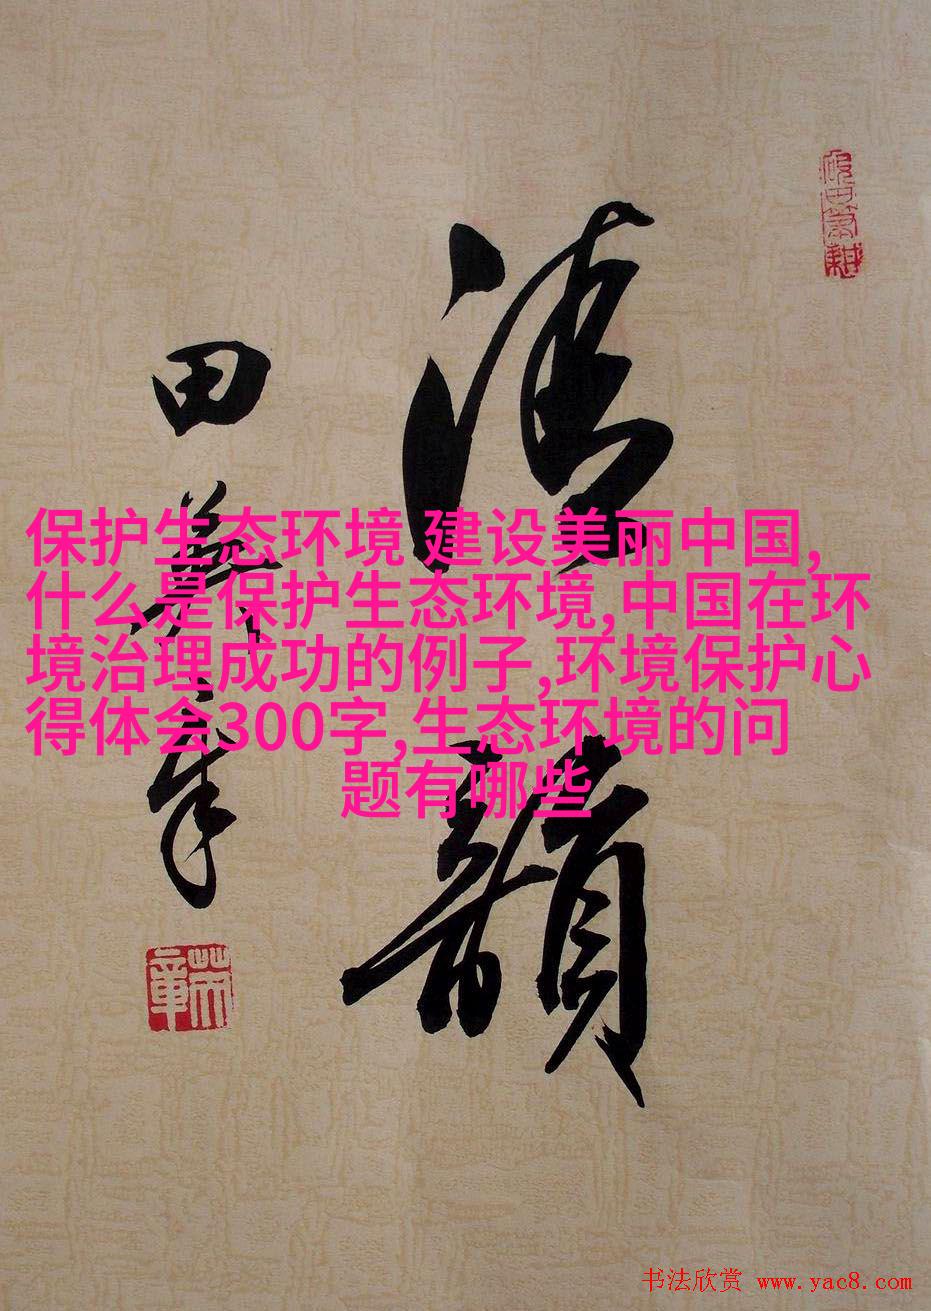 清韻
田英章
保护生态环境 建设美丽中国,
什么是保护生态环境,中国在环
境治理成功的例子,环境保护心
得体会300字,生态环境的问
题有哪些
书法欣赏 www.yac8.com